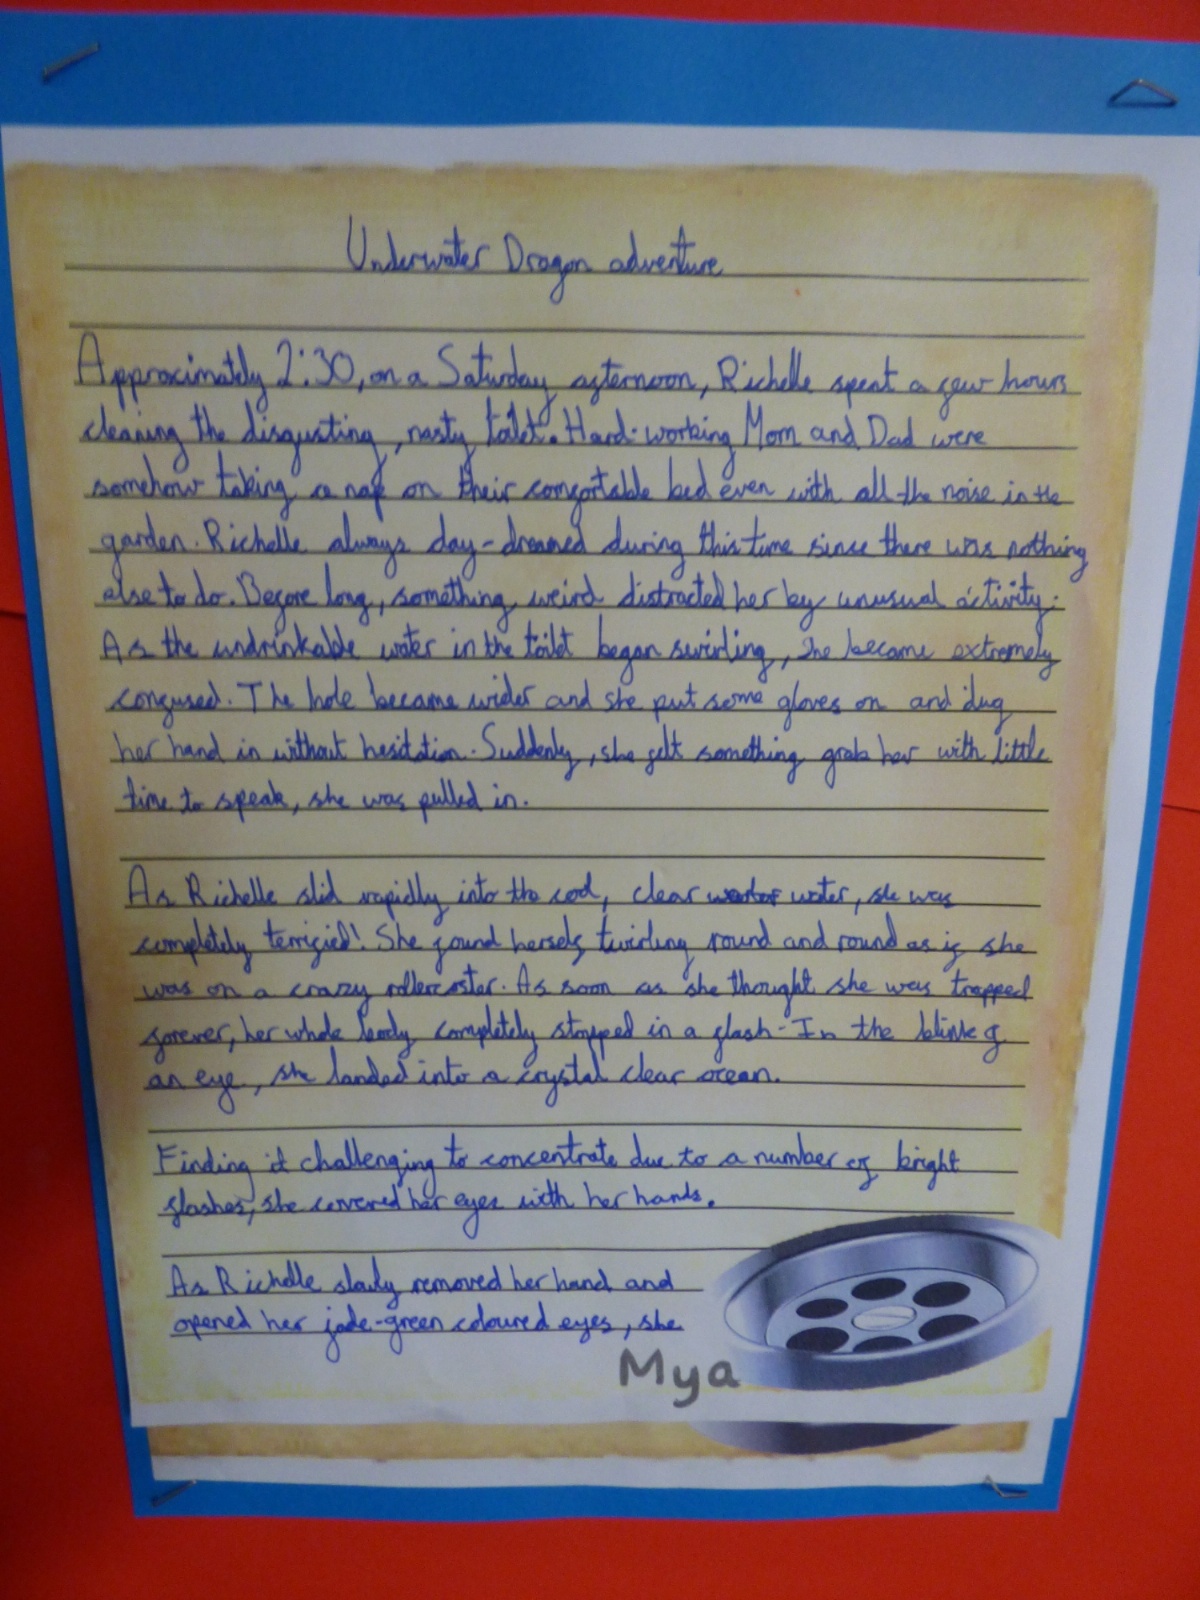 Underwater Dragon adventure
Approximately 2:30, on a Saturday afternoon, Richelle spent a few hours
cleaning the disgusting, nasty toilet. Hard-working Mom and Dad were
somehow taking a nap on their comfortable bed even with all the noise in the
garden. Richelle always day-dreamed during this time since there was nothing
else to do. Before long, something weird distracted her by unusual activity.
As the undrinkable water in the toilet began swirling, she became extremely
confused. The hole became wider and she put some gloves on and dug
her hand in without hesitation. Suddenly, she felt something grab her with little
time to speak, she was pulled in.
As Richelle slid rapidly into the cool, clear water, she was
completely terrified! She found herself twirling round and round as if she
was on a crazy rollercoster. As soon as she thought she was trapped
forever, her whole body completely stopped in a flash. In the blink of
an eye, she landed into a crystal clear ocean.
Finding it challenging to concentrate due to a number of bright
flashes, she covered her eyes with her hands.
As Richelle slowly removed her hand and
opened her jade-green coloured eyes, she
Mya